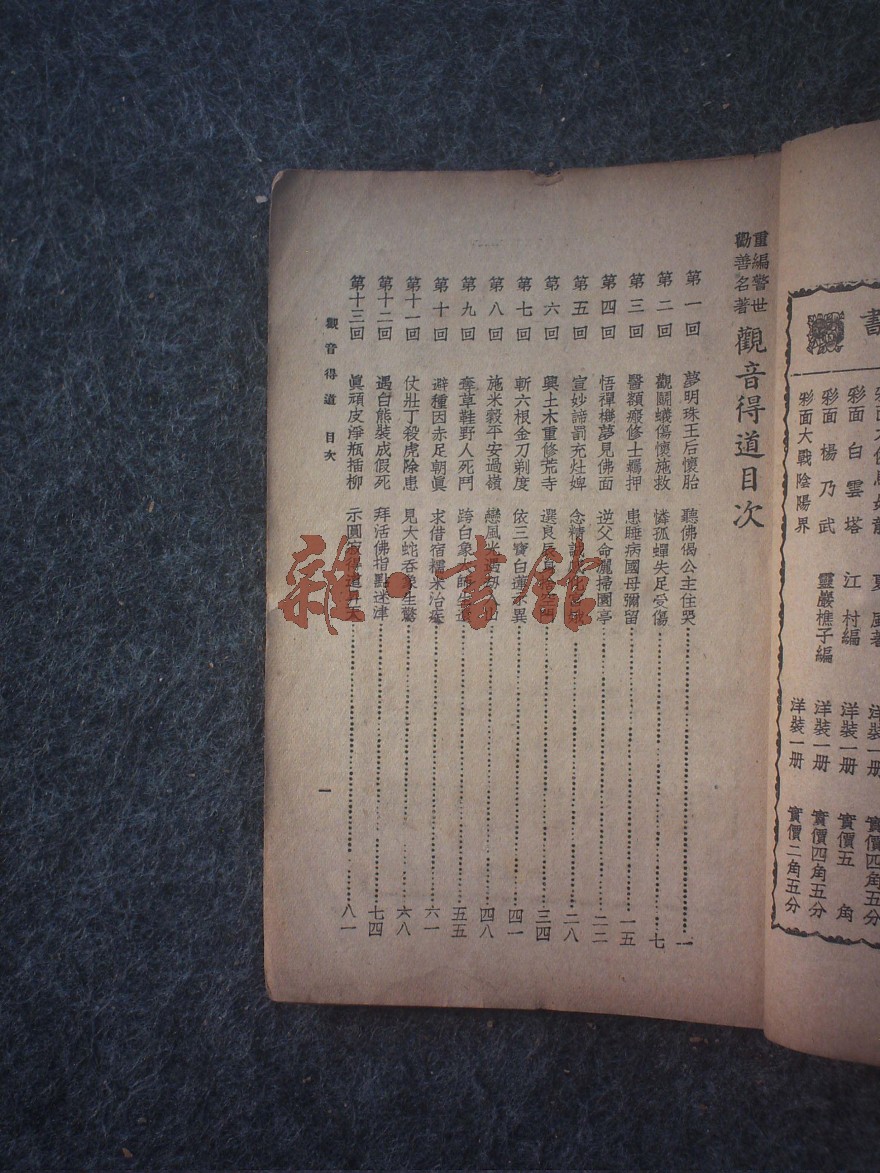 書
夏風著
洋裝一册
實價四角五分
彩面 白雲塔
江村編
洋裝一册
實價五角
彩面 楊乃武
靈巖樵子編
洋裝一册
實價四角五分
彩面 大戰陰陽界
洋裝一册
實價二角五分
重編警世
勸善名著
觀音得道目次
第一回 夢明珠王后懷胎 聽佛偈公主住哭 一
第二回 觀鬭蟻傷懷施救 憐孤蟬失足受傷 七
第三回 醫額瘢修士羈押 患睡病國母彌留 一五
第四回 悟禪機夢見佛面 逆父命灑掃園亭 二二
第五回 宣妙諦罰充灶婢 念精 二八
第六回 興土木重修荒寺 選良辰 三四
第七回 斬六根金刀剃度 依三寶白 異 四一
第八回 施米榖平安過嶺 戀風光 四八
第九回 奪草鞋野人死鬥 跨白象 五五
第十回 避種因赤足朝眞 求借宿糯米治瘧 六一
第十一回 仗壯丁殺虎除患 見大蛇吞象生驚 六八
第十二回 遇白熊裝成假死 拜活佛指點迷津 七四
第十三回 眞頑皮淨瓶插柳 示圓寂得道升天 八一
觀音得道 目次
一
雜·書館